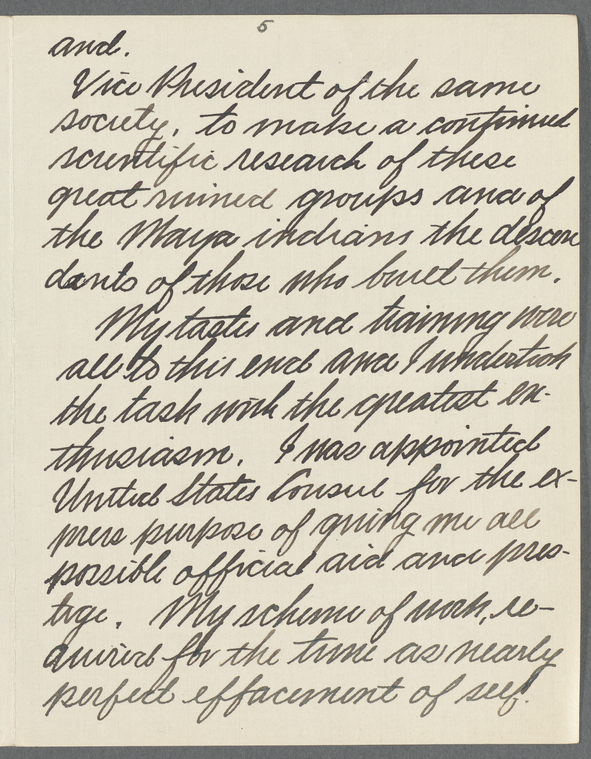 5
and.
Vice President of the same
society, to make a continued
scientific research of these
great ruined groups and of
the Maya indians the descen
dants of those who built them.
My tastes and training were
all to this end and I undertook
the task with the greatest en-
thusiasm. I was appointed
United States Consul for the ex-
press purpose of giving me all
possible official aid and pres-
tige. My scheme of work, re-
quired for the time as nearly
perfect effacement of self.